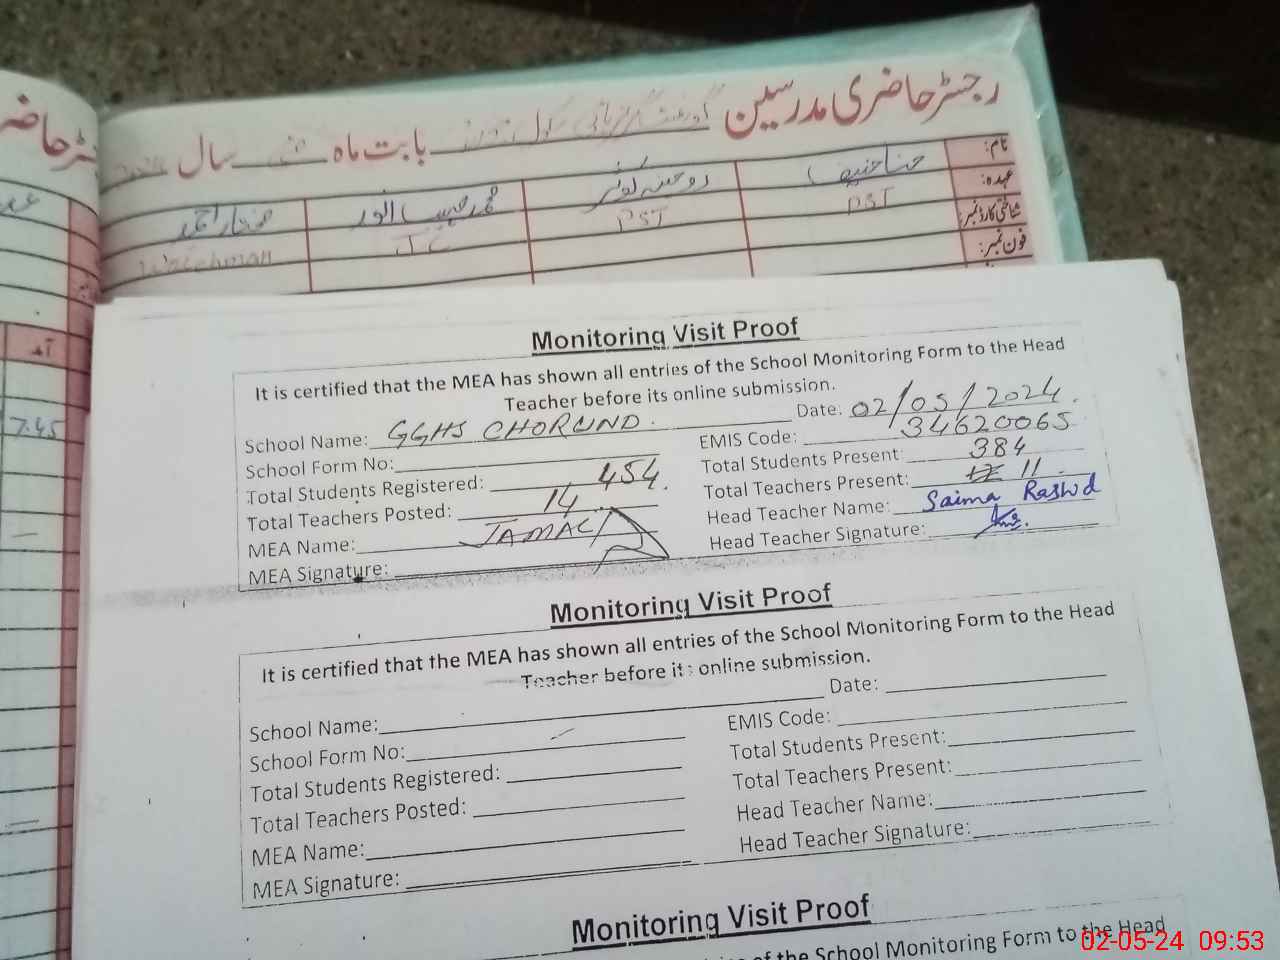 رجسٹر حاضری مدرسین گورنمنٹ گرلز ہائی سکول بابت ماہ مئی سال
نام:
عہدہ: PST PST
شناختی کارڈ نمبر:
فون نمبر:
محمد حبیب انور
مختار احمد
Watchman
7.45
آمد
Monitoring Visit Proof
It is certified that the MEA has shown all entries of the School Monitoring Form to the Head
Teacher before its online submission.
School Name: GGHS CHORUND. Date: 02/05/2024.
School Form No: EMIS Code: 34620065
Total Students Registered: 454 Total Students Present: 384
Total Teachers Posted: 14. Total Teachers Present: 11
MEA Name: JAMAL Head Teacher Name: Saima Rashid
MEA Signature: Head Teacher Signature:
Monitoring Visit Proof
It is certified that the MEA has shown all entries of the School Monitoring Form to the Head
Teacher before its online submission.
School Name: Date:
School Form No: EMIS Code:
Total Students Registered: Total Students Present:
Total Teachers Posted: Total Teachers Present:
MEA Name: Head Teacher Name:
MEA Signature: Head Teacher Signature:
Monitoring Visit Proof
of the School Monitoring Form to the Head
02-05-24 09:53